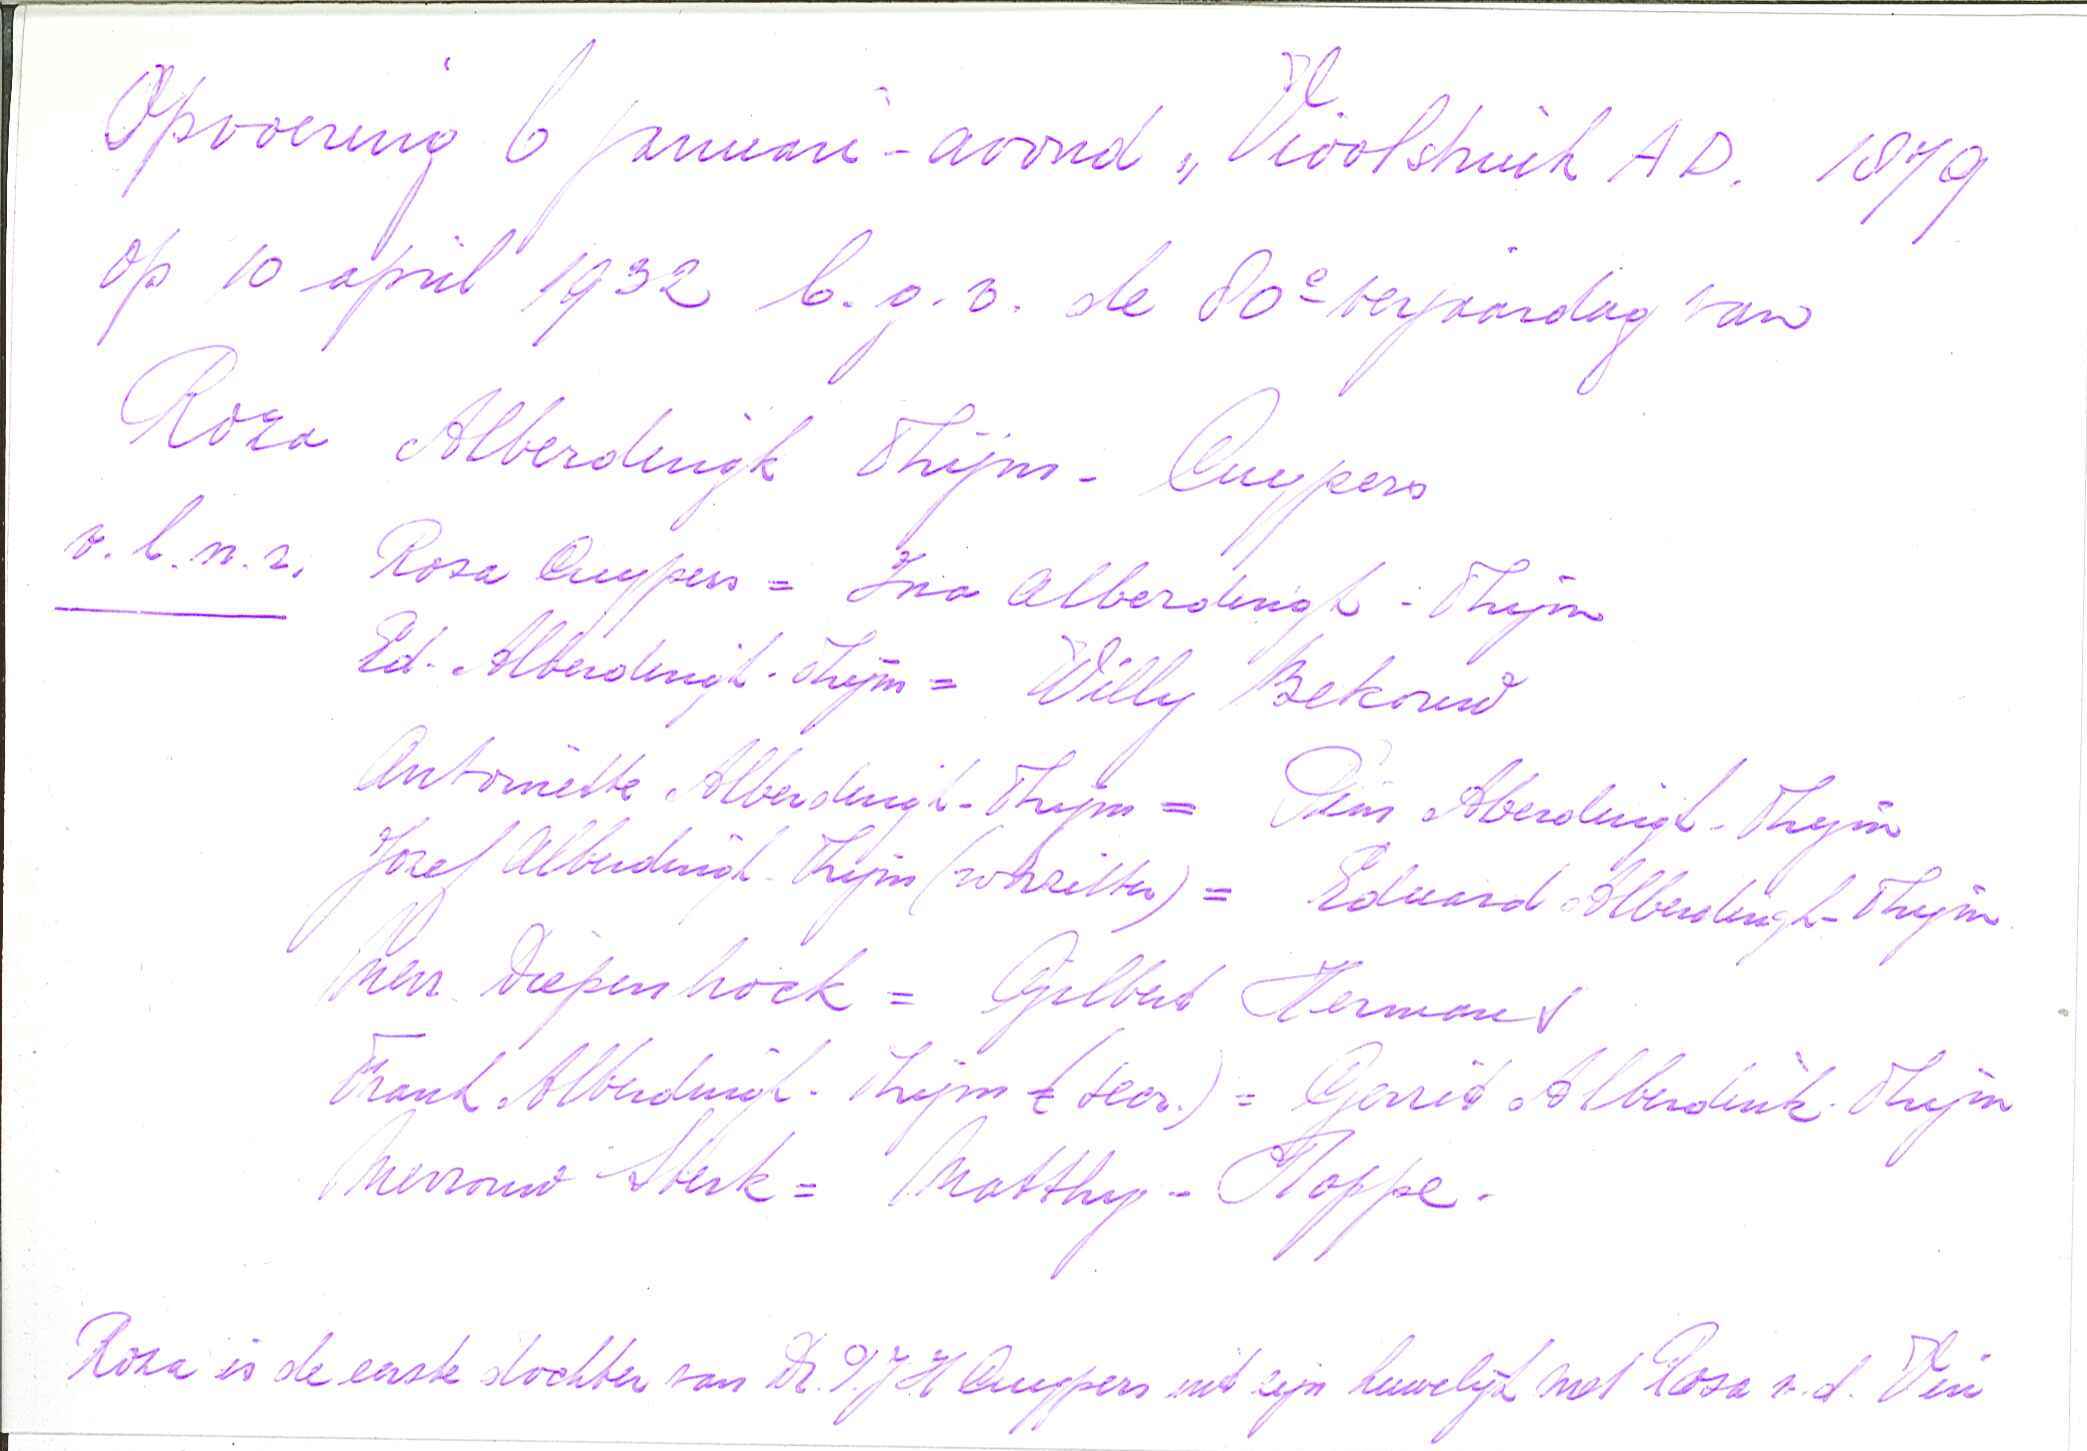 Opvoering 6 januari - avond „Vioolstruik A D. 1879
op 10 april 1932 b.g.v. de 80e verjaardag van
Roza Alberdingk Thijm - Cuypers
v.l.n.r. Rosa Cuypers = Ina Alberdingk - Thijm
Ed. Alberdingk - Thijm = Willy Bekouw
Antoinette Alberdingk - Thijm = Pim Aberdingk - Thijm
Jozef Alberdingk - Thijm = Eduard Alberdingk - Thijm
Mevr. Diepenhock = Gilbert Hermans
Frank Alberdingk - Thijm (secr.) = Gerrit Alberdink - Thijm
Mevrouw Sterk = Matthy - Hoppe.
Roza is de eerste dochter van Dr. P.J.H Cuypers uit zijn huwelijk met Rosa v.d. Vin